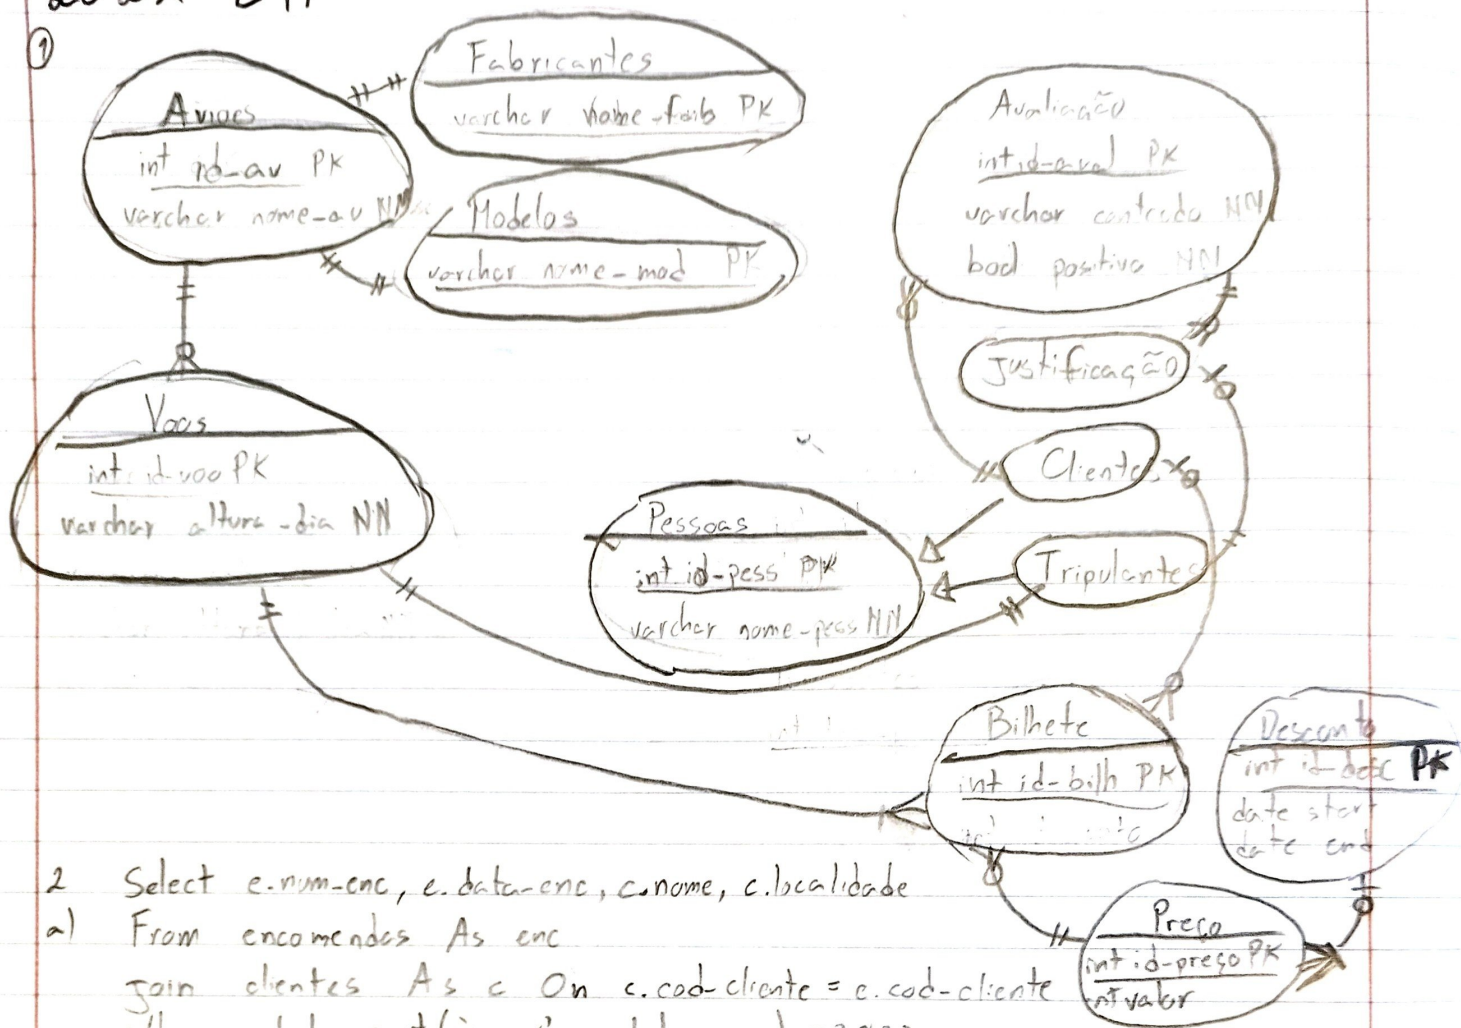 1
Avioes
int id-av PK
varchar nome-av NN
Fabricantes
varchar nome-fab PK
Modelos
varchar nome-mod PK
Avaliação
int id-aval PK
varchar conteudo NN
bool positiva NN
Justificação
Clientes
Tripulantes
Voos
int id-voo PK
varchar altura-dia NN
Pessoas
int id-pess PK
varchar nome-pess NN
Bilhete
int id-bilh PK
Desconto
int id-desc PK
date start
date end
Preço
int id-preço PK
int valor
2 Select e.num-enc, e.data-enc, c.nome, c.localidade
a) From encomendas As enc
join clientes As c On c.cod-cliente = e.cod-cliente